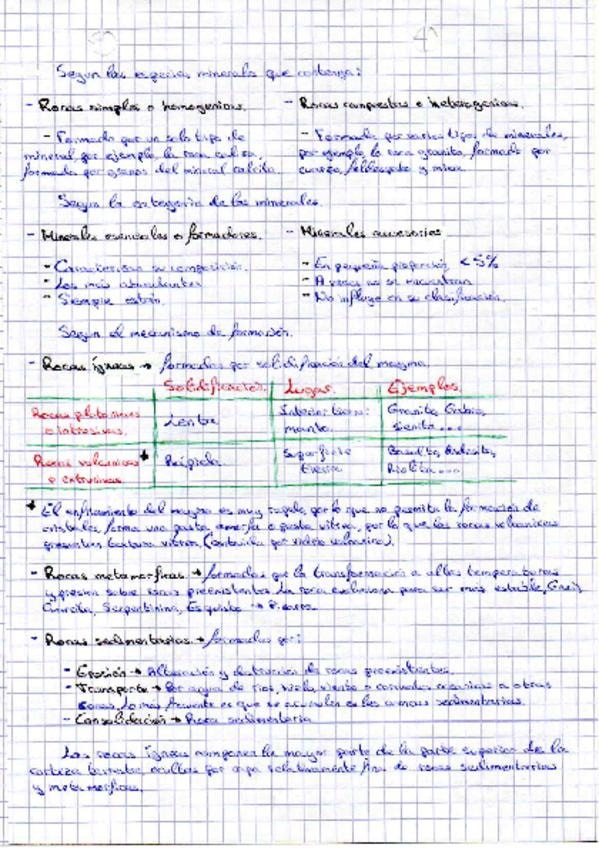 Segun las especies minerales que contenga:
- Rocas simples o homogenias.
- Formada por un solo tipo de
mineral, por ejemplo, la roca caliza,
formada por granos del mineral calcita.
- Rocas compuestas o heterogenias.
- Formada por varios tipos de minerales,
por ejemplo, la roca granito, formada por
cuarzo, feldespato y mica.
Segun la categoria de los minerales.
- Minerales esenciales o formadores.
- Caracterizan su composición.
- Los más abundantes
- Siempre están.
- Minerales accesorios
- En pequeña proporción < 5%
- A veces no se encuentran
- No influye en su clasificación.
Segun el mecanismo de formación.
- Rocas ígneas → formadas por solidificación del magma.
Solidificación Lugar. Ejemplos.
Rocas plutonicas
o intrusivas.
Lenta
Interior terres-
Granito, Gabro,
sienita...
Rocas volcanicas *
o extrusivas
Rápida.
Superficie
terrestre
Basalto, Andesita,
Riolita...
* El enfriamiento del magma es muy rapido, por lo que no permite la formación de
cristales, forma una pasta amorfa o pasta vitrea, por lo que las rocas volcanicas
presentan textura vitrea, (constituida por vidrio volcanico).
- Rocas metamorficas → formadas por la transformación a altas temperaturas
y presion sobre rocas preexistentes. La roca evoluciona para ser más estable, Gneis,
Cuarcita, Serpentinina, Esquisto → Pizarra.
- Rocas sedimentarias → formadas por:
- Erosión → Alteración y destrucción de rocas preexistentes.
- Transporte → Por agua de rios, hielo, viento o corrientes oceanicas a otras
zonas, lo más frecuente es que se acumulen en las cuencas sedimentarias.
- Consolidación → Roca sedimentaria
Las rocas ígneas componen la mayor parte de la parte superior de la
corteza terrestre, ocultas por capa relativamente fina de rocas sedimentarias
y metamorficas.